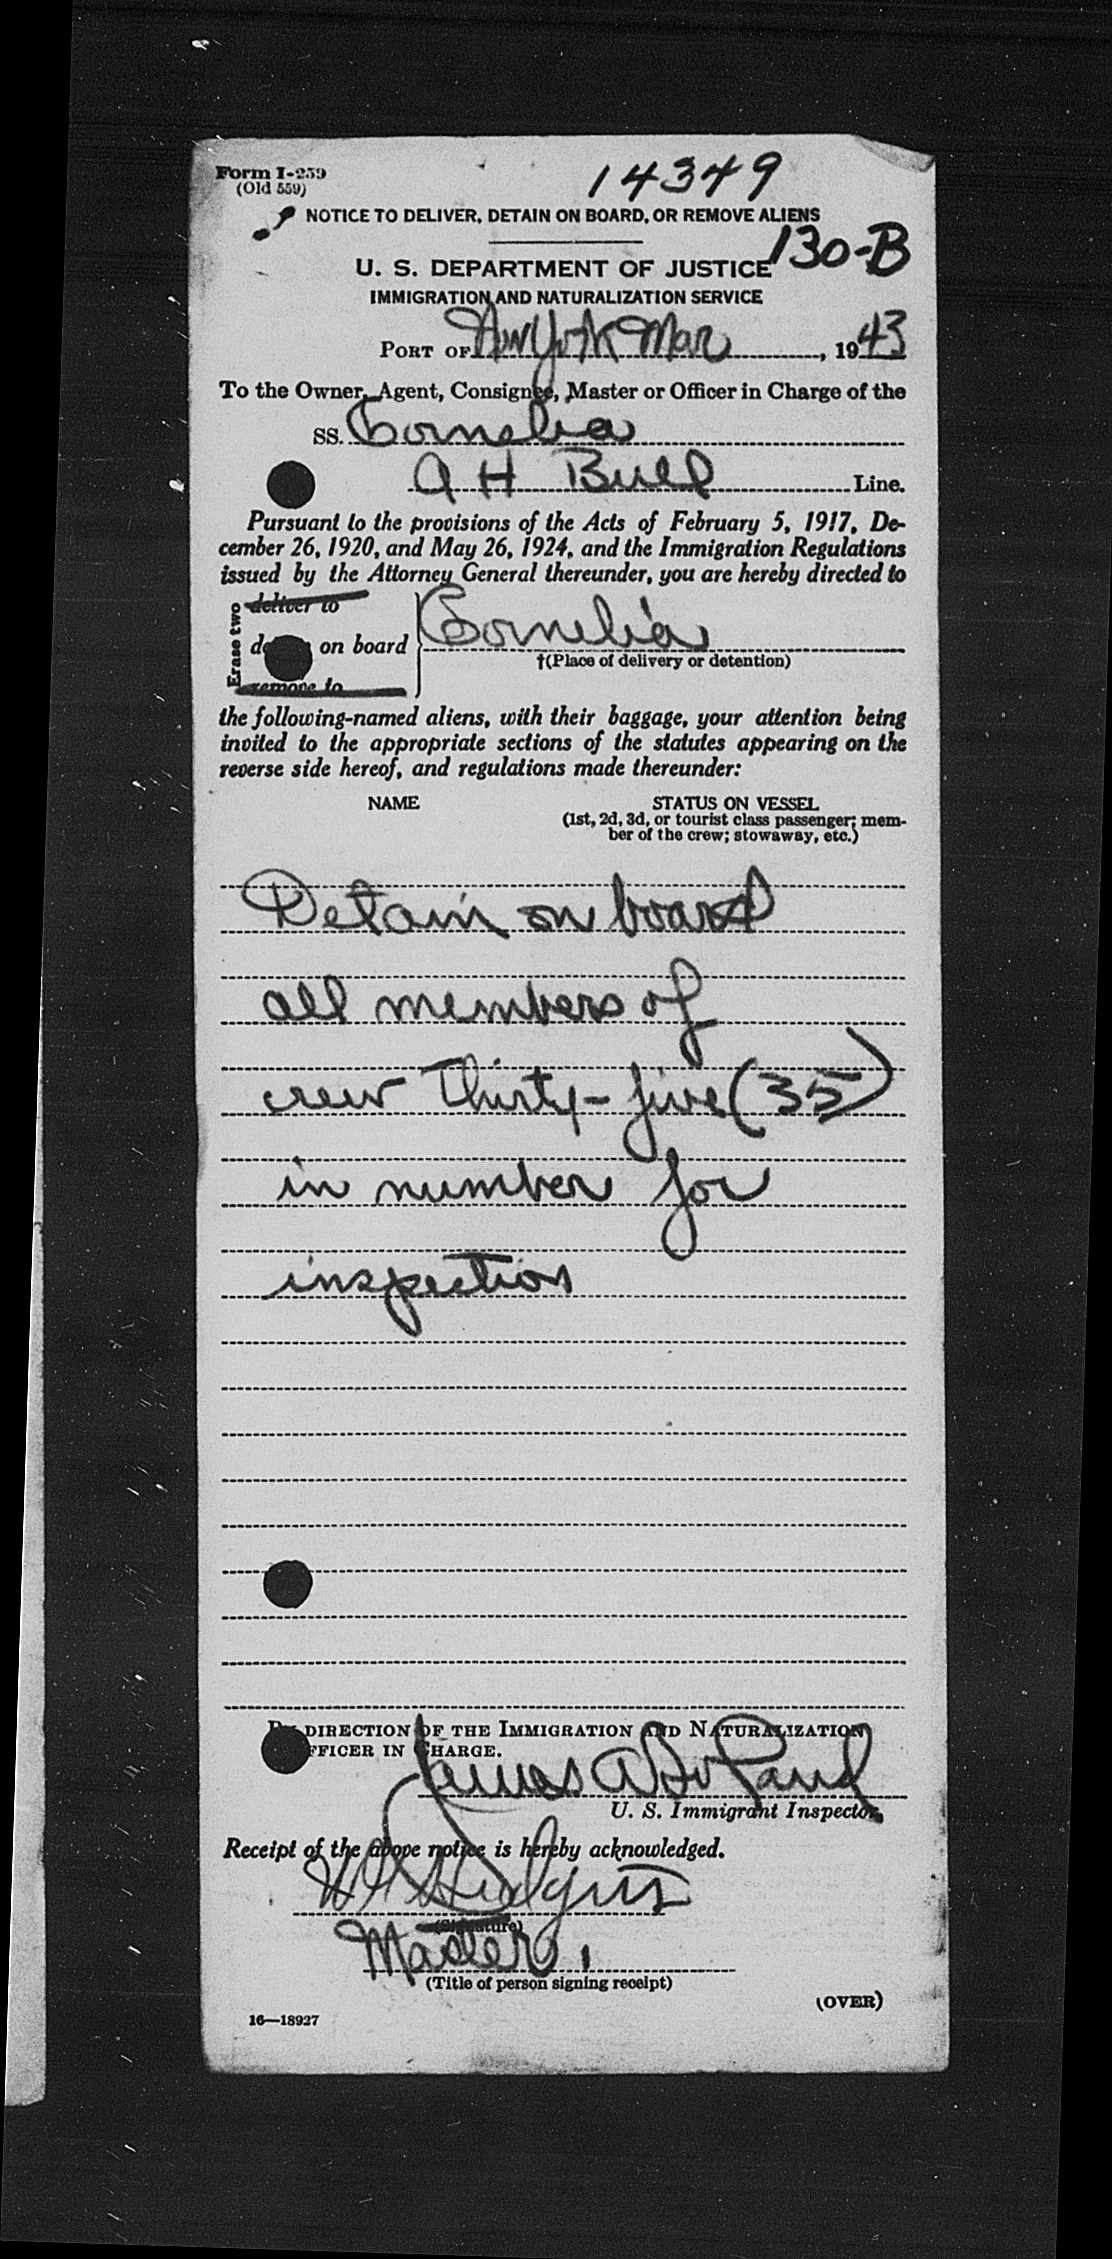 Form I-259
(Old 559)
14349
NOTICE TO DELIVER, DETAIN ON BOARD, OR REMOVE ALIENS
130-B
U. S. DEPARTMENT OF JUSTICE
IMMIGRATION AND NATURALIZATION SERVICE
PORT OF New York Mar, 1943
To the Owner, Agent, Consignee, Master or Officer in Charge of the
SS. Cornelia
A H Bull Line.
Pursuant to the provisions of the Acts of February 5, 1917, De-
cember 26, 1920, and May 26, 1924, and the Immigration Regulations
issued by the Attorney General thereunder, you are hereby directed to
Erase two
deliver to
on board Cornelia
†(Place of delivery or detention)
remove to
the following-named aliens, with their baggage, your attention being
invited to the appropriate sections of the statutes appearing on the
reverse side hereof, and regulations made thereunder:
NAME STATUS ON VESSEL
(1st, 2d, 3d, or tourist class passenger; mem-
ber of the crew; stowaway, etc.)
Detain on board
all members of
crew Thirty-five (35)
in number for
inspection
By DIRECTION OF THE IMMIGRATION AND NATURALIZATION
OFFICER IN CHARGE.
James A
U. S. Immigrant Inspector.
Receipt of the above notice is hereby acknowledged.
(Signature)
Master
(Title of person signing receipt)
(OVER)
16—18927